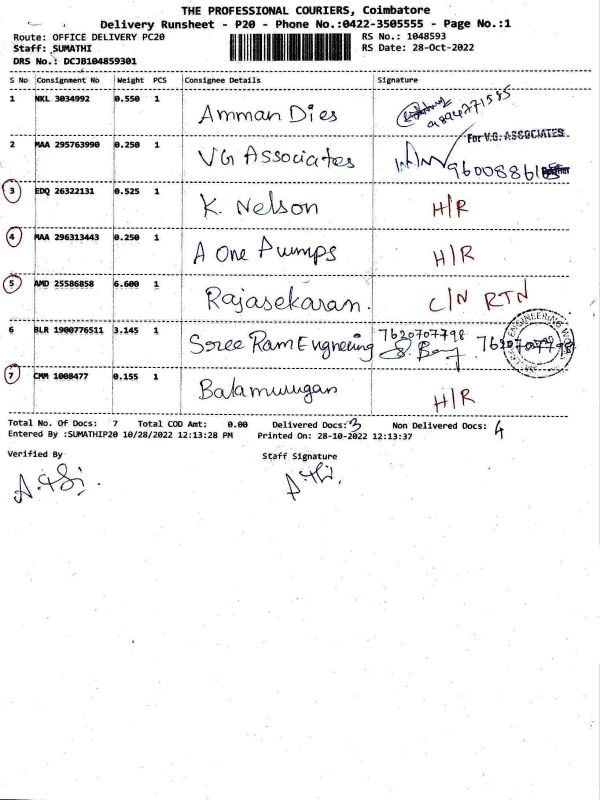 THE PROFESSIONAL COURIERS, Coimbatore
Delivery Runsheet - P20 - Phone No.:0422-3505555 - Page No.:1
Route: OFFICE DELIVERY PC20 RS No.: 1048593
Staff: SUMATHI RS Date: 28-Oct-2022
DRS No.: DCJB104859301
S No Consignment No Weight PCS Consignee Details Signature
1 NKL 3034992 0.550 1 Amman Dies 9894771585
2 MAA 295763990 0.250 1 VG Associates For V.G. ASSOCIATES
3 EDQ 26322131 0.525 1 K. Nelson H/R
4 MAA 296313443 0.250 1 A One Pumps H/R
5 AMD 25586858 6.600 1 Rajasekaran. C/N RTN
6 BLR 1900776511 3.145 1 Sree Ram Engneering 7620707798 7620707798
7 CMM 1008477 0.155 1 Balamurugan H/R
Total No. Of Docs: 7 Total COD Amt: 0.00 Delivered Docs: 3 Non Delivered Docs: 4
Entered By :SUMATHIP20 10/28/2022 12:13:28 PM Printed On: 28-10-2022 12:13:37
Verified By Staff Signature